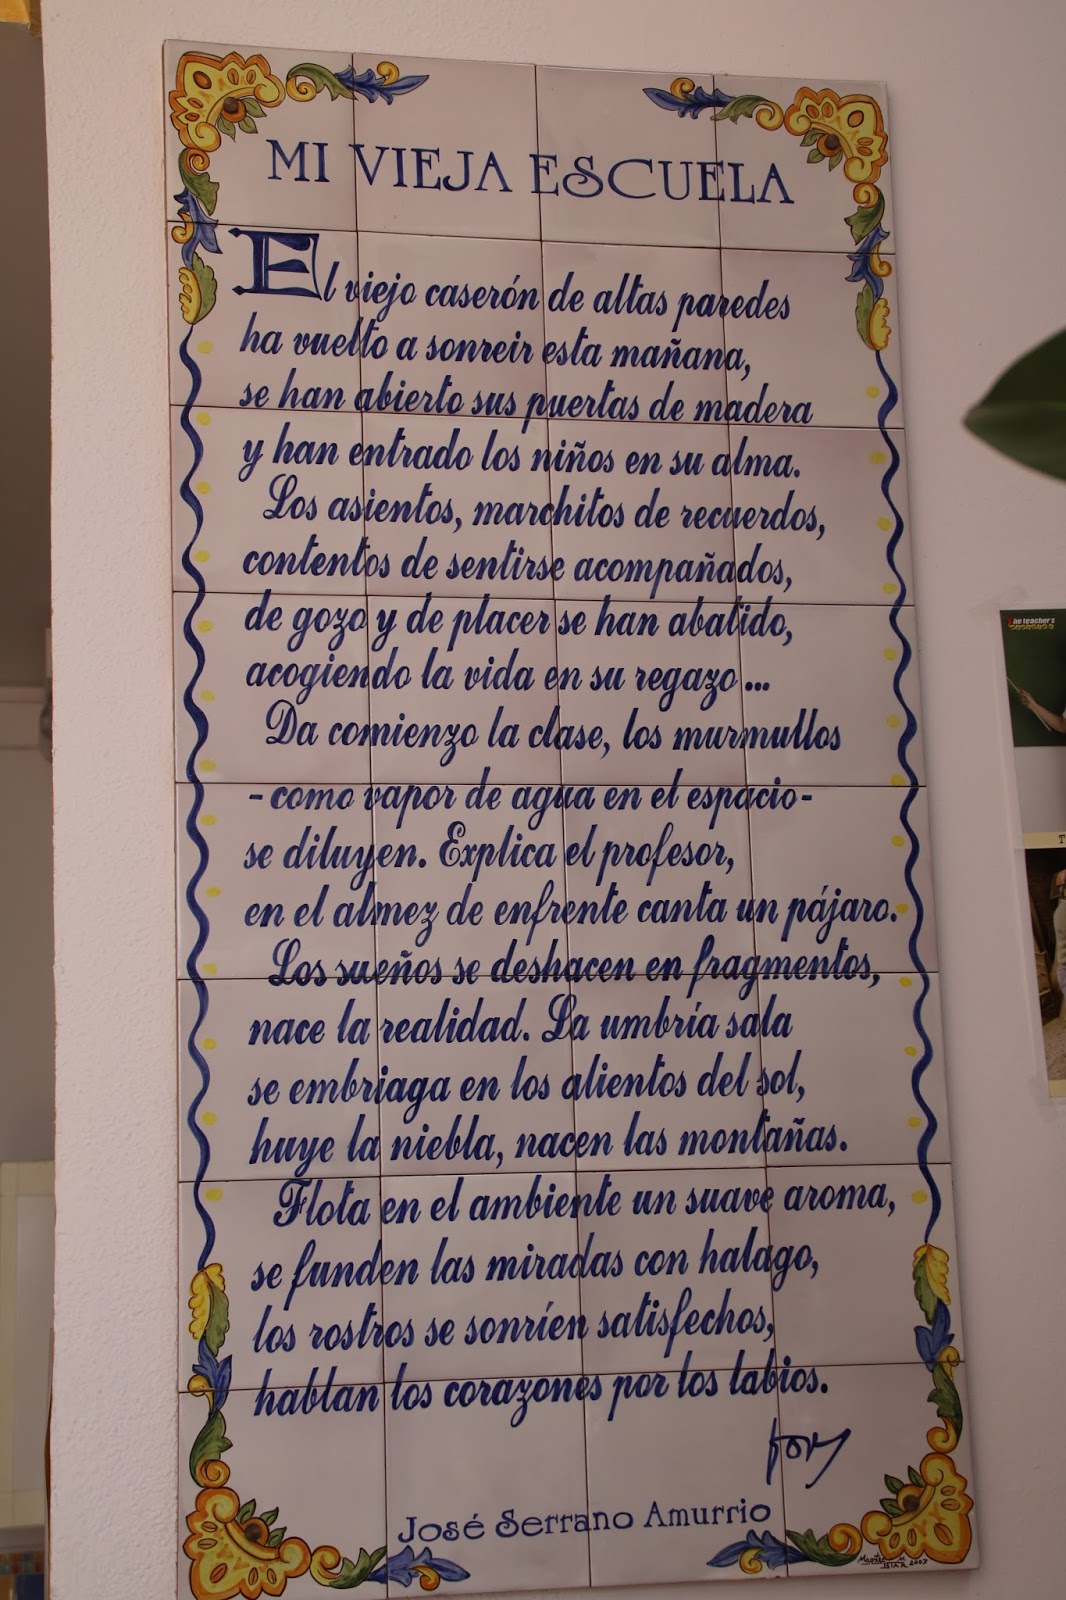 MI VIEJA ESCUELA
El viejo caserón de altas paredes
ha vuelto a sonreir esta mañana,
se han abierto sus puertas de madera
y han entrado los niños en su alma.
Los asientos, marchitos de recuerdos,
contentos de sentirse acompañados,
de gozo y de placer se han abatido,
acogiendo la vida en su regazo...
Da comienzo la clase, los murmullos
-como vapor de agua en el espacio-
se diluyen. Explica el profesor,
en el almez de enfrente canta un pájaro.
Los sueños se deshacen en fragmentos,
nace la realidad. La umbría sala
se embriaga en los alientos del sol,
huye la niebla, nacen las montañas.
Flota en el ambiente un suave aroma,
se funden las miradas con halago,
los rostros se sonríen satisfechos,
hablan los corazones por los labios.
José Serrano Amurrio
2007
he teacher's